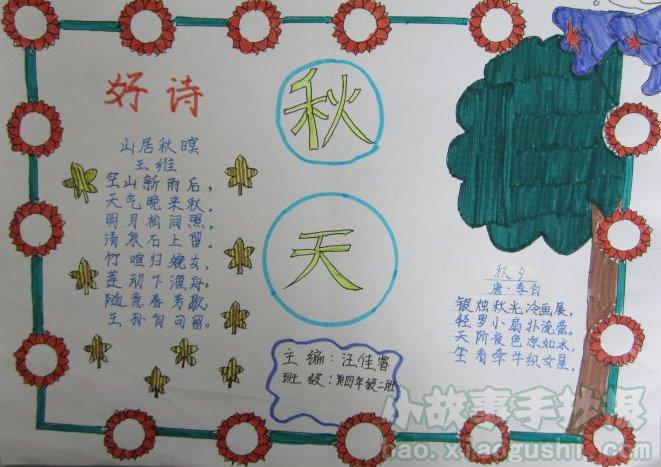 好诗
山居秋暝
王维
空山新雨后，
天气晚来秋。
明月松间照，
清泉石上留。
竹喧归晚女，
莲动下渔舟。
随意春芳歇，
王孙自可留。
秋
天
主编：汪佳睿
班级：第四年级二班
秋夕
唐·李白
银烛秋光冷画展，
轻罗小扇扑流萤。
天阶夜色凉如水，
坐看牵牛织女星。
小故事手抄报
bao.xiaogushi.com